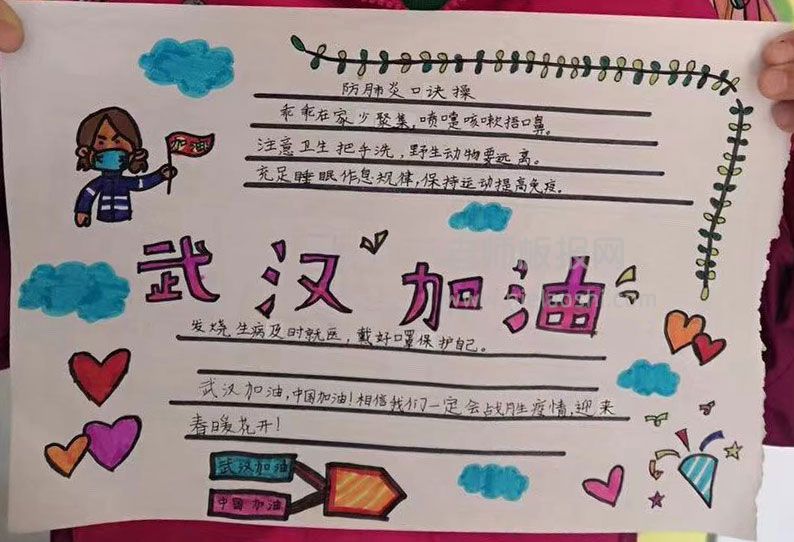 防肺炎口诀操
乖乖在家少聚集,喷嚏咳嗽捂口鼻。
注意卫生把手洗,野生动物要远离。
充足睡眠作息规律,保持运动提高免疫。
加油
武汉加油
发烧生病及时就医,戴好口罩保护自己。
武汉加油,中国加油!相信我们一定会战胜疫情,迎来
春暖花开!
武汉加油
中国加油